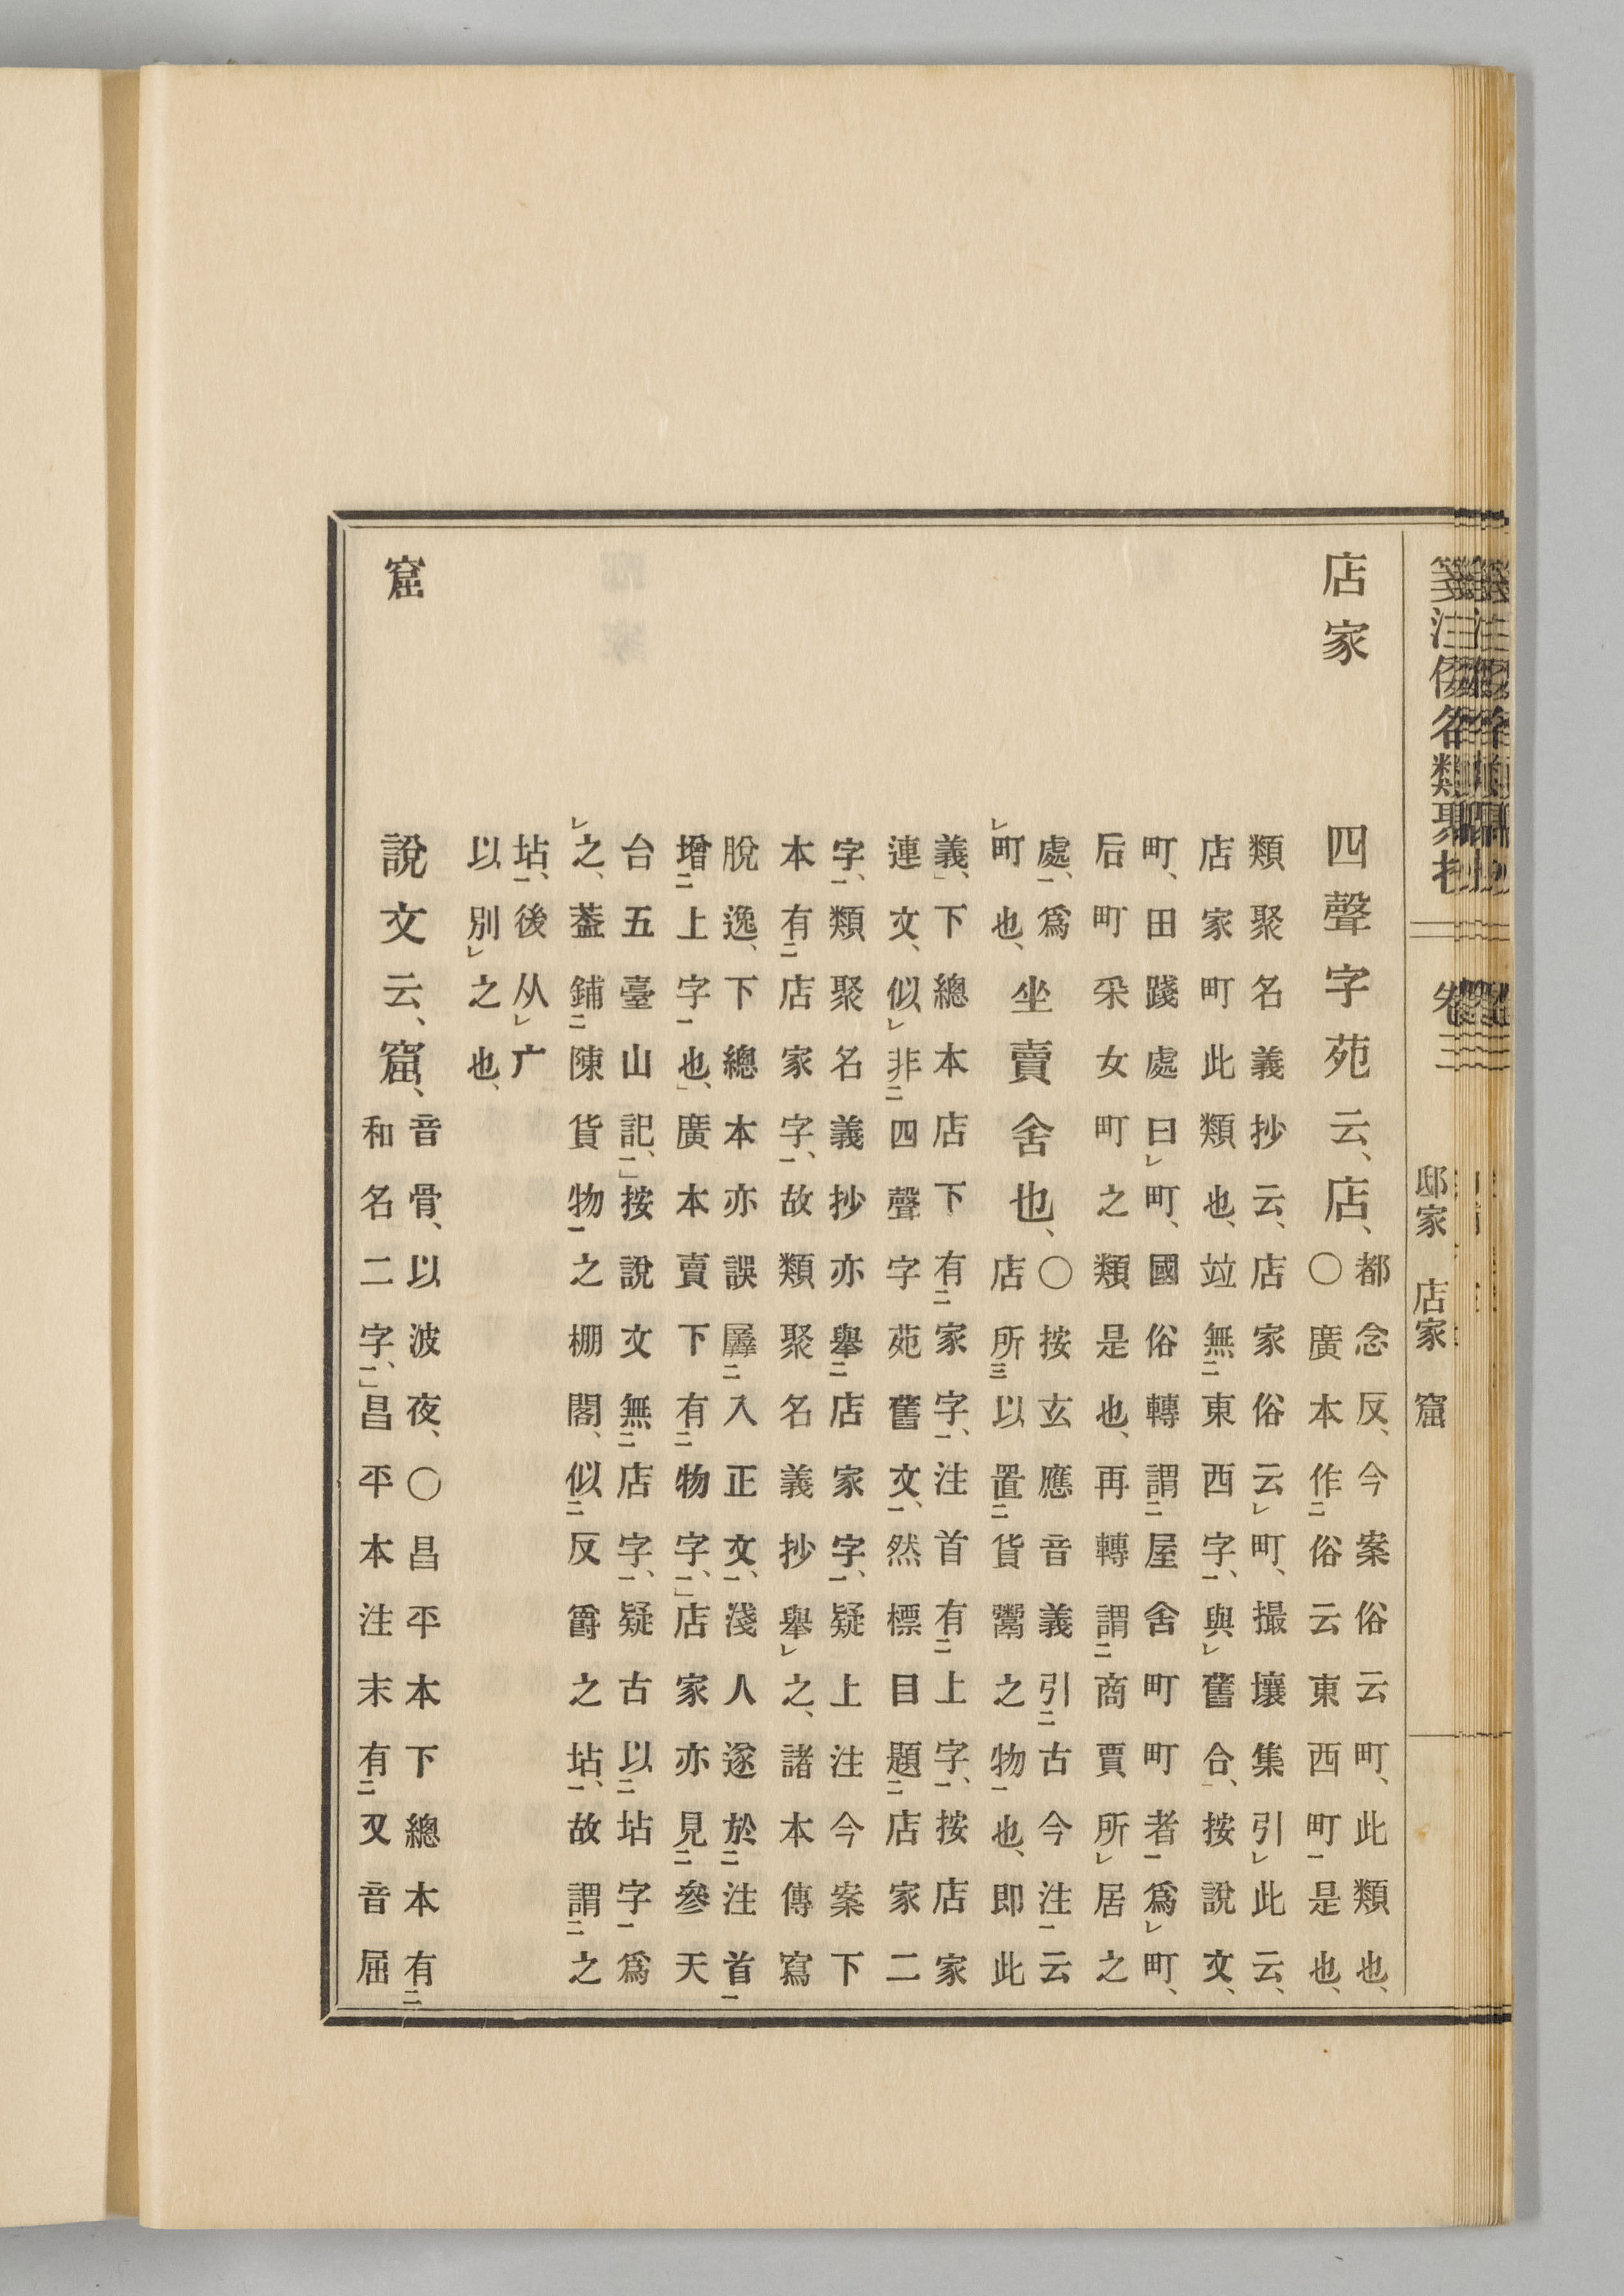 箋注倭名類聚抄 卷三 邸家 店家 窟
店家 四聲字苑云、店、都念反、今案俗云町、此類也、
〇廣本作㆓俗云東西町㆒是也、
類聚名義抄云、店家俗云㆑町、撮壤集引㆑此云、
店家町此類也、竝無㆓東西字㆒、與㆑舊合、按說文、
町、田踐處曰㆑町、國俗轉謂㆓屋舍町町者㆒爲㆑町、
后町采女町之類是也、再轉謂㆓商賈所㆑居之
處㆒、爲
㆑町也、
坐賣舍也、
〇按玄應音義引㆓古今注㆒云
店所㆘以置㆓貨鬻之物㆒也、即此
義、下總本店下有㆓家字㆒、注首有㆓上字㆒、按店家
連文、似㆑非㆓四聲字苑舊文㆒、然標目題㆓店家二
字㆒、類聚名義抄亦舉㆓店家字㆒、疑上注今案下
本有㆓店家字㆒、故類聚名義抄舉㆑之、諸本傳寫
脫逸、下總本亦誤羼㆓入正文㆒、淺人遂於㆓注首㆒
增㆓上字㆒也、廣本賣下有㆓物字㆒、店家亦見㆓參天
台五臺山記㆒、按說文無㆓店字㆒、疑古以㆓坫字㆒爲
㆑之、蓋鋪㆓陳貨物㆒之棚閣、似㆓反爵之坫㆒、故謂㆓之
坫㆒、後从㆑广
以別㆑之也、
窟 說文云、窟、音骨、以波夜、〇昌平本下總本有㆓
和名二字㆒、昌平本注末有㆓又音屈